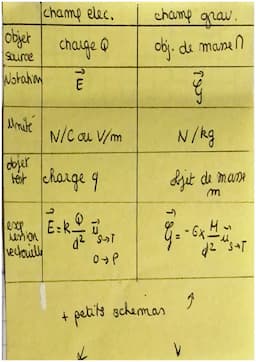 champ elec. champ grav.
Objet source charge Q obj. de masse M
Notation E⃗ G⃗
Unité N/C ou V/m N/kg
objet test charge q objet de masse m
expression vectorielle E⃗ = k Q/d² u⃗ S→T G⃗ = -G x M/d² u⃗ S→T
O→P
+ petits schemas